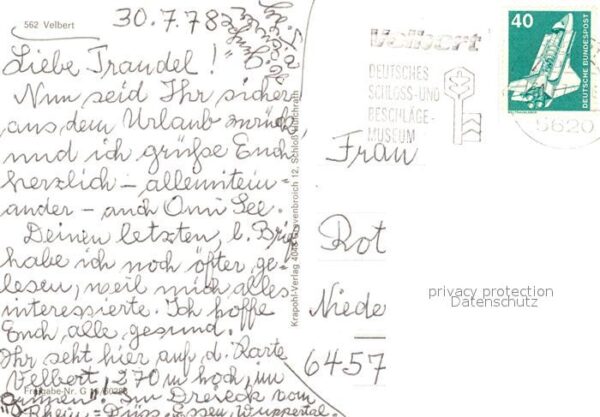 562 Velbert
30.7.78
Liebe Traudel!
Nun seid Ihr sicher
aus dem Urlaub zurück
und ich grüße Euch
herzlich – allemitein-
ander – auch Omi See.
Deinen letzten, l. Brief
habe ich noch öfter ge-
lesen, weil mich alles
interessierte. Ich hoffe
Euch alle gesund.
Ihr seht hier auf d. Karte
Velbert, 270 m hoch, im
"Grünen"! Im Dreieck vom
Rhein – Düss. Essen, Wuppertal.
Freigabe-Nr. G
Krapohl-Verlag 4048 Grevenbroich 12, Schloß
Velbert
DEUTSCHES
SCHLOSS-UND
BESCHLÄGE-
MUSEUM
40
DEUTSCHE BUNDESPOST
5620
Frau
Rot
Niede
6457
privacy protection
Datenschutz